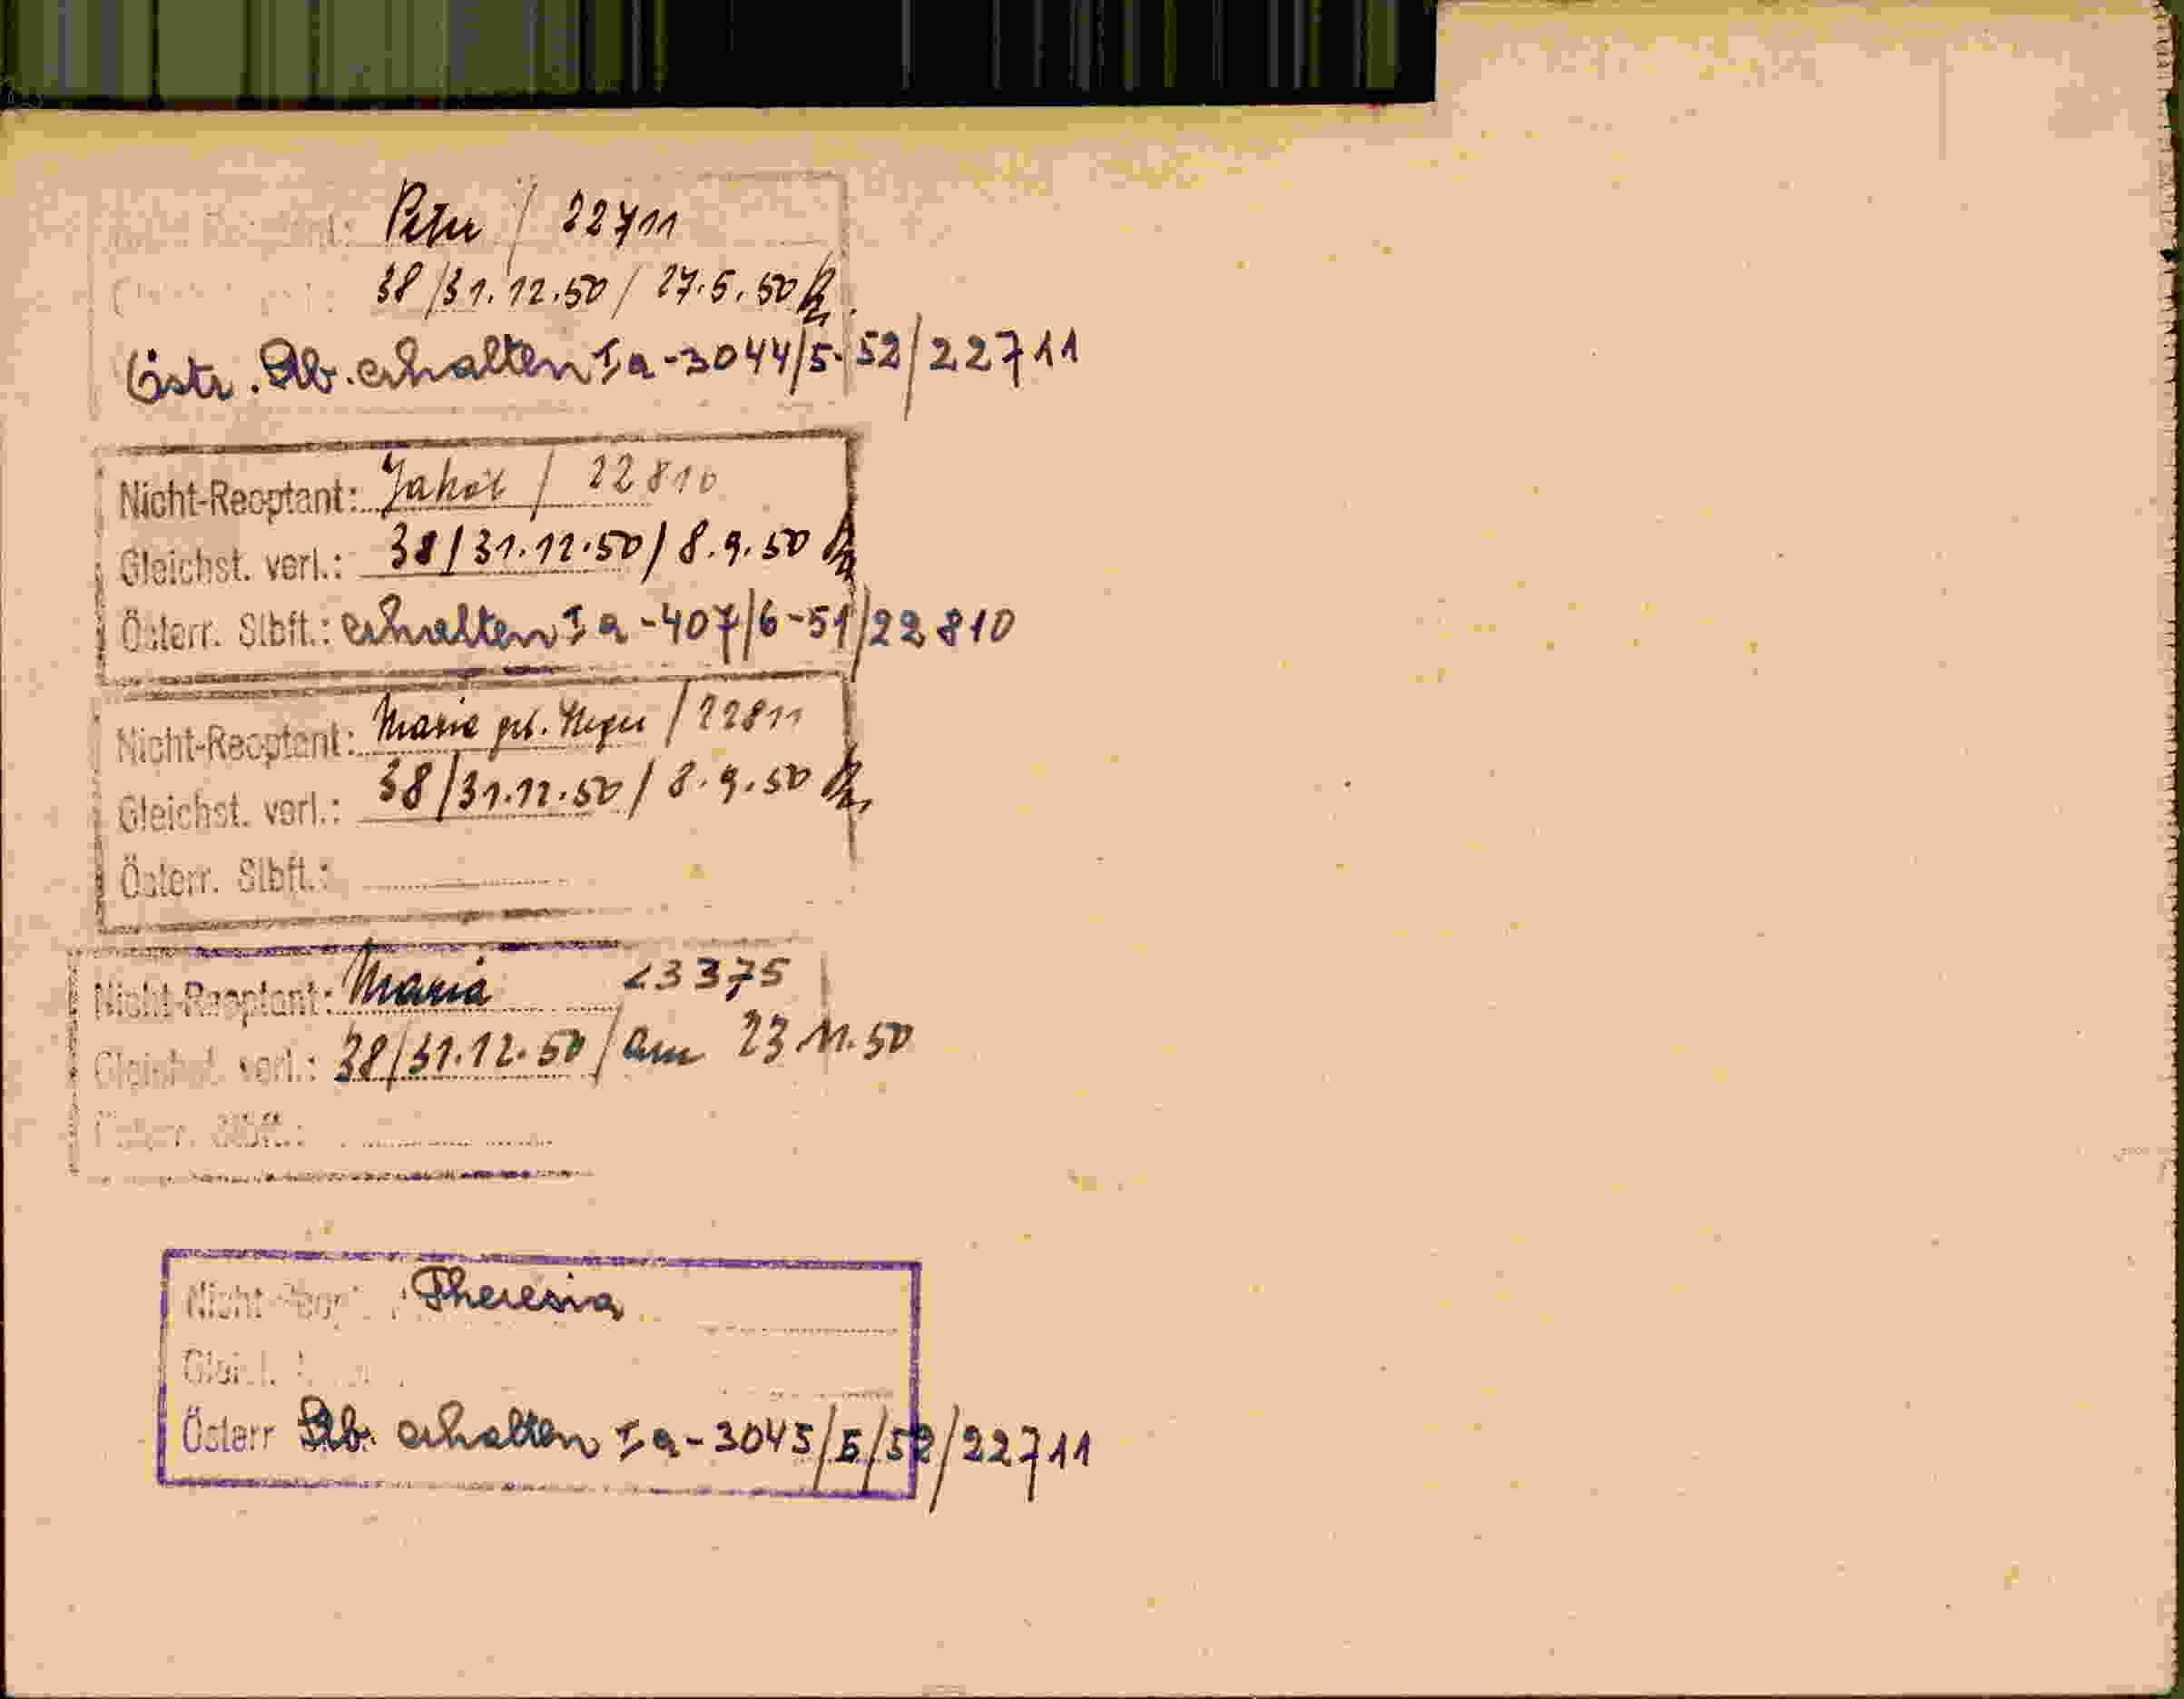 Peter / 22711
38/31.12.50 / 27.5.50
Östr. Stb. erhalten Ia-3044/5-52/22711
Nicht-Reoptant: Jakob / 22810
Gleichst. verl.: 38/31.12.50/ 8.9.50
Österr. Stbft.: erhalten Ia-407/6-51/22810
Nicht-Reoptant: Maria geb. / 22811
Gleichst. verl.: 38/31.12.50/ 8.9.50
Österr. Stbft.:
Nicht-Reoptant: Maria 23375
Gleichst. verl.: 38/31.12.50/ am 23.11.50
Österr. Stbft.:
Nicht-Reopt Theresia
Österr Stb. erhalten Ia-3045/5/52/22711